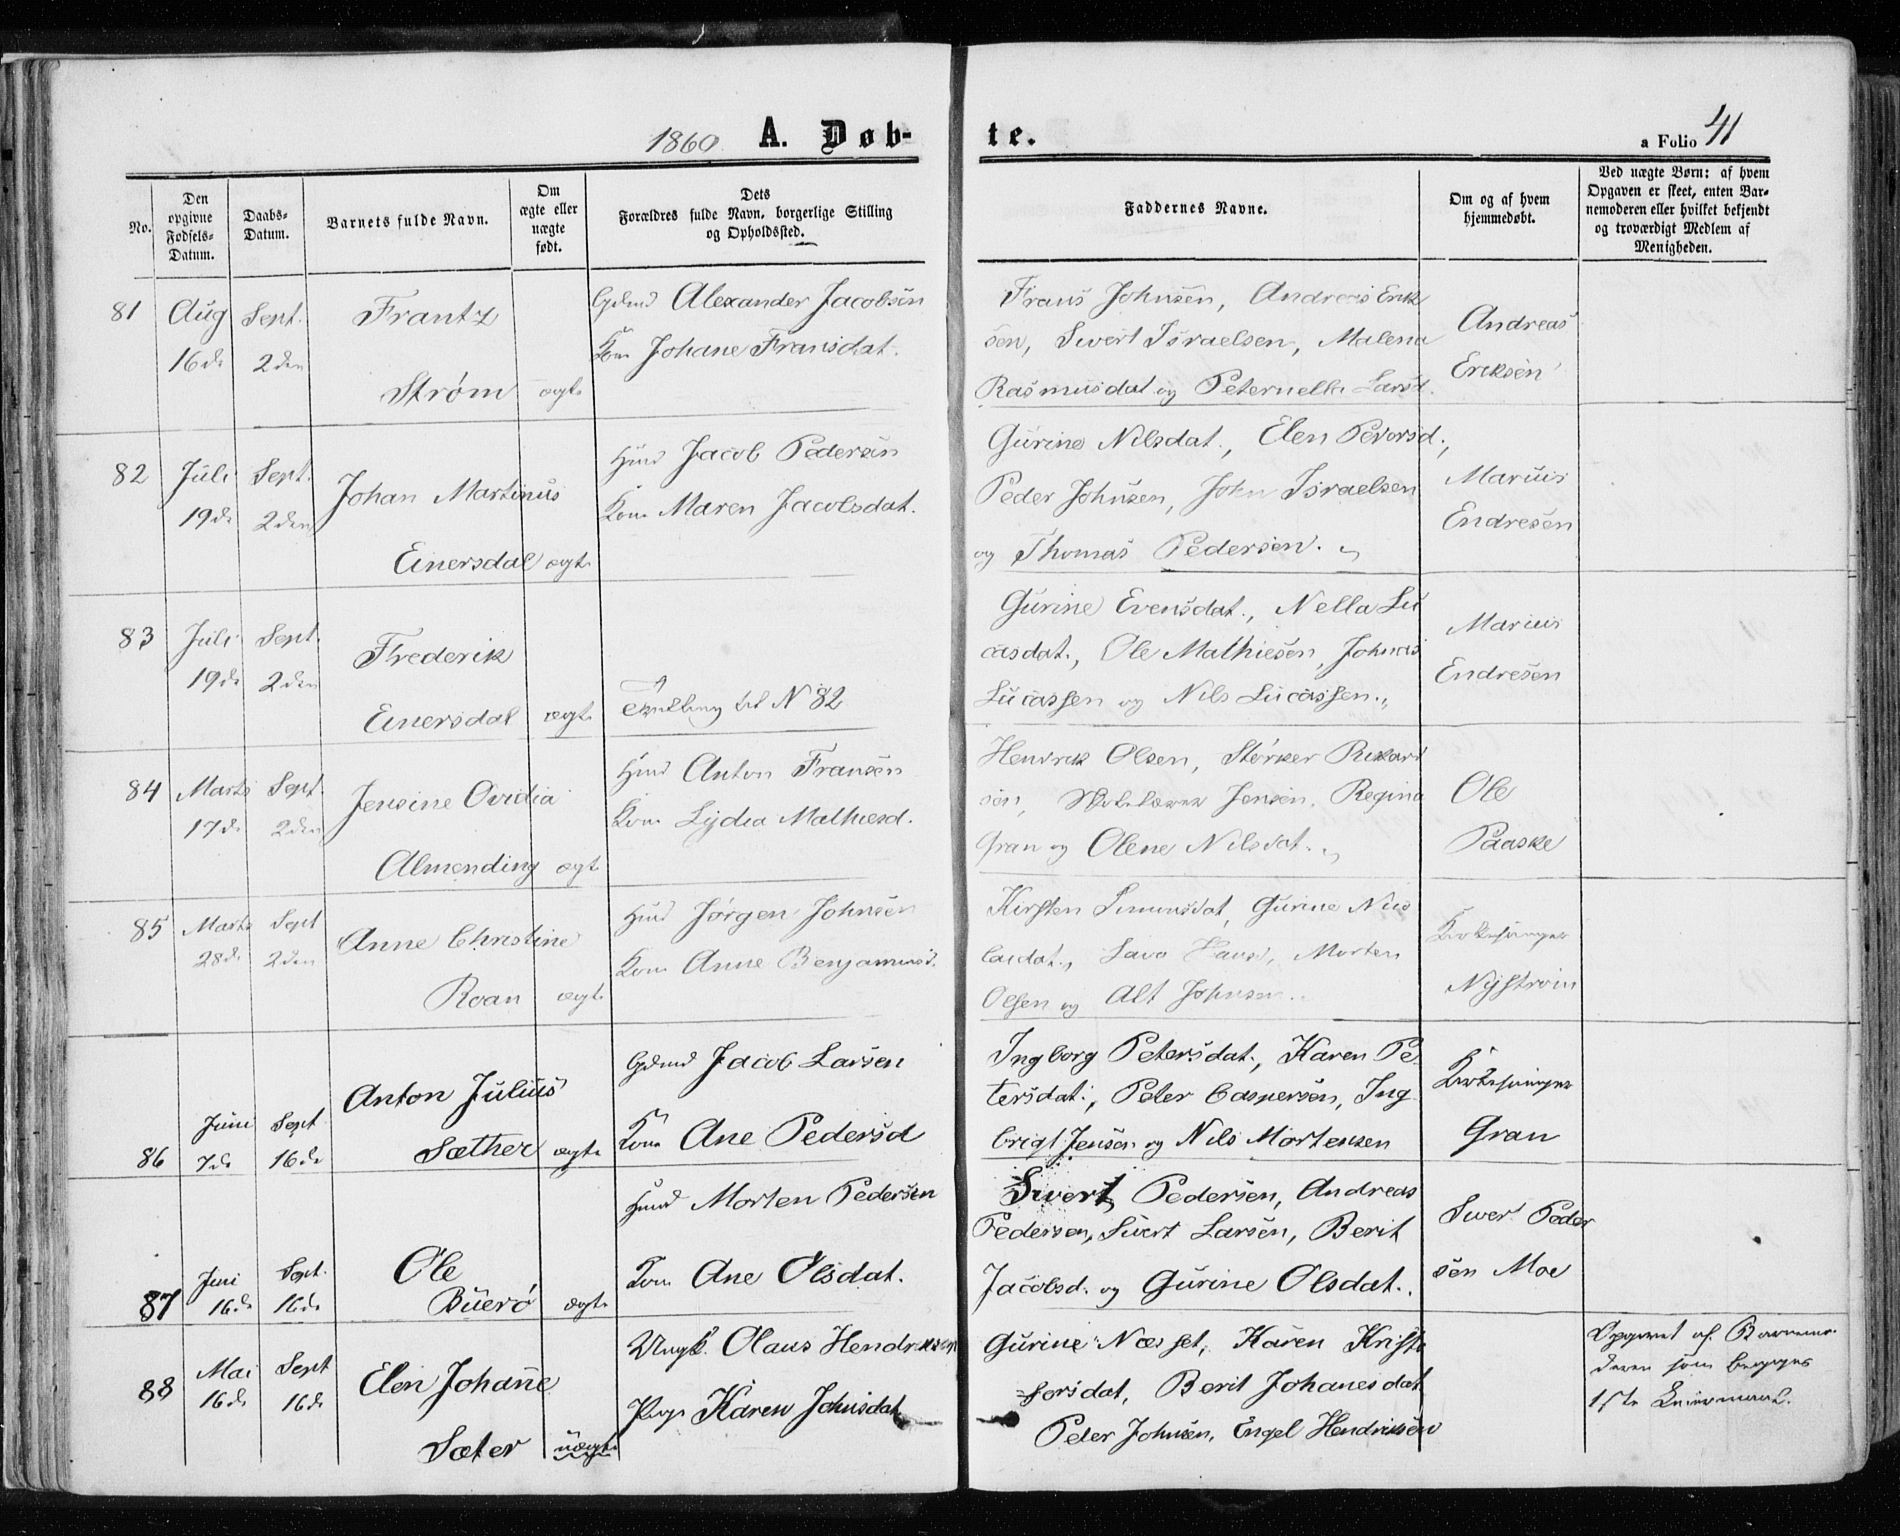 1860. A. Døb-
te. a Folio 41
No.
Den opgivne Fødsels-Datum.
Daabs-Datum.
Barnets fulde Navn.
Om ægte eller uægte født.
Dets Forældres fulde Navn, borgerlige Stilling og Opholdssted.
Faddernes Navne.
Om og af hvem hjemmedøbt.
Ved uægte Børn: af hvem Opgaven er skeet, enten Barnemoderen eller hvilket bekjendt og troværdigt Medlem af Menigheden.
81 Aug Sept. Frantz Gdmd Alexander Jacobsen
16de 2den Kone Johane Fransdat.
Strøm ægte
Frans Johnsen, Andreas Erik
sen, Sivert Israelsen, Malena
Rasmusdat og Peternella Larsd.
Andreas
Eriksen
82 Juli Sept. Johan Martinus Hmd Jacob Pedersen
19de 2den Kone Maren Jacobsdat.
Einersdal ægte
Gurine Nilsdat., Elen Pedersd.,
Peder Johnsen, John Israelsen
og Thomas Pedersen.
Marius
Endresen
83 Juli Sept. Frederik
19de 2den
Einersdal ægte Tvilling til N 82
Gurine Evensdat., Nella Lu
casdat., Ole Mathiesen, Johnas
Lucassen og Nils Lucassen.,
Marius
Endresen
84 Marts Sept. Jensine Ovidia Hmd Anton Fransen
17de 2den Kone Lydia Mathiesd.
Almending ægte
Henrik Olsen, Størker Rikard
sen, Jensen, Regina
Gran og Olene Nilsdat.
Ole
Paaske
85 Marts Sept Anne Christine Hmd Jørgen Johnsen
28de 2den Kone Anne Benjaminsd.
Roan ægte
Kirsten Simunsdat, Gurine Nic
laidat., Morten
Olsen og Alt Johnsen.
Kirkesanger
Nystrøm
86 Juni Sept Anton Julius Gdmd Jacob Larsen
7de 16de Sæther ægte Kone Ane Pedersd
Ingborg Petersdat., Karen Pe
tersdat., Peter Caspersen, Ing
brigt Jensen og Nils Mortensen
Kirkesanger
Gran
87 Juni Sept. Ole Hmd Morten Pedersen
16de 16de Buerø ægte Kone Ane Olsdat.
Sivert Pedersen, Andreas
Pedersen, Sivert Larsen, Berit
Jacobsd. og Gurine Olsdat.
Sivert Peder
sen Moe
88 Mai Sept Elen Johane Ungk. Olaus Hendriksen
16de 16de Pige Karen Johnsdat
Sæter uægte
Gurine Næsset, Karen Kristo
forsdat, Berit Johanesdat
Peter Johnsen, Engel Hendriksen
Opgivet af Barnemo
deren som begges
1ste Leiermaal.